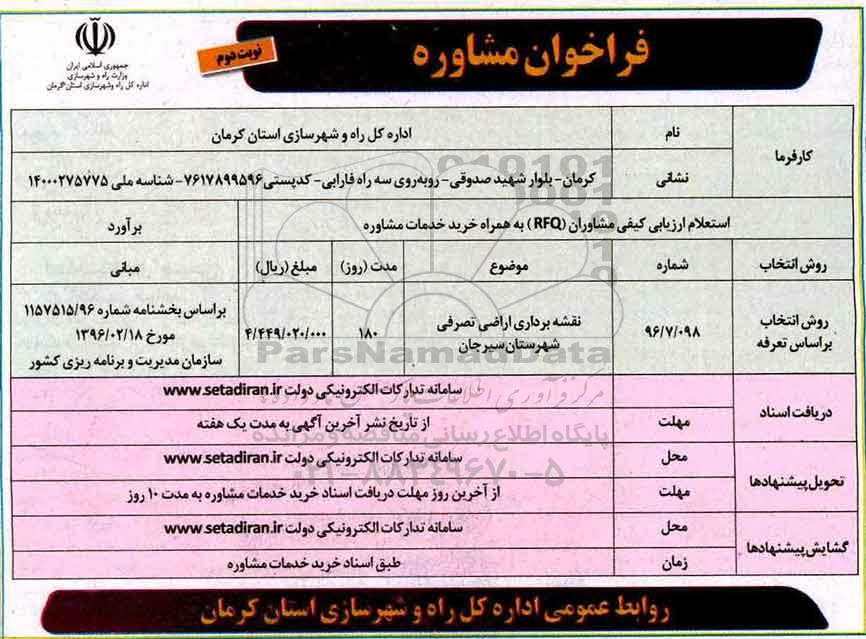 فراخوان مشاوره
نوبت دوم
جمهوری اسلامی ایران
وزارت راه و شهرسازی
اداره کل راه وشهرسازی استان کرمان
کارفرما
نام
اداره کل راه و شهرسازی استان کرمان
نشانی
کرمان- بلوار شهید صدوقی- روبه‌روی سه راه فارابی- کدپستی ۷۶۱۷۸۹۹۵۹۶- شناسه ملی ۱۴۰۰۰۲۷۵۷۷۵
استعلام ارزیابی کیفی مشاوران (RFQ) به همراه خرید خدمات مشاوره
برآورد
روش انتخاب
شماره
موضوع
مدت (روز)
مبلغ (ریال)
مبانی
روش انتخاب
براساس تعرفه
۹۶/۷/۰۹۸
نقشه برداری اراضی تصرفی
شهرستان سیرجان
۱۸۰
۴/۴۴۹/۰۲۰/۰۰۰
براساس بخشنامه شماره ۱۱۵۷۵۱۵/۹۶
مورخ ۱۳۹۶/۰۲/۱۸
سازمان مدیریت و برنامه ریزی کشور
دریافت اسناد
سامانه تدارکات الکترونیکی دولت www.setadiran.ir
مهلت
از تاریخ نشر آخرین آگهی به مدت یک هفته
تحویل پیشنهادها
محل
سامانه تدارکات الکترونیکی دولت www.setadiran.ir
مهلت
از آخرین روز مهلت دریافت اسناد خرید خدمات مشاوره به مدت ۱۰ روز
گشایش پیشنهادها
محل
سامانه تدارکات الکترونیکی دولت www.setadiran.ir
زمان
طبق اسناد خرید خدمات مشاوره
روابط عمومی اداره کل راه و شهرسازی استان کرمان
ParsNamadData
پایگاه اطلاع رسانی مناقصه و مزایده
۰۲۱-۸۸۳۴۹۶۷۰-۵